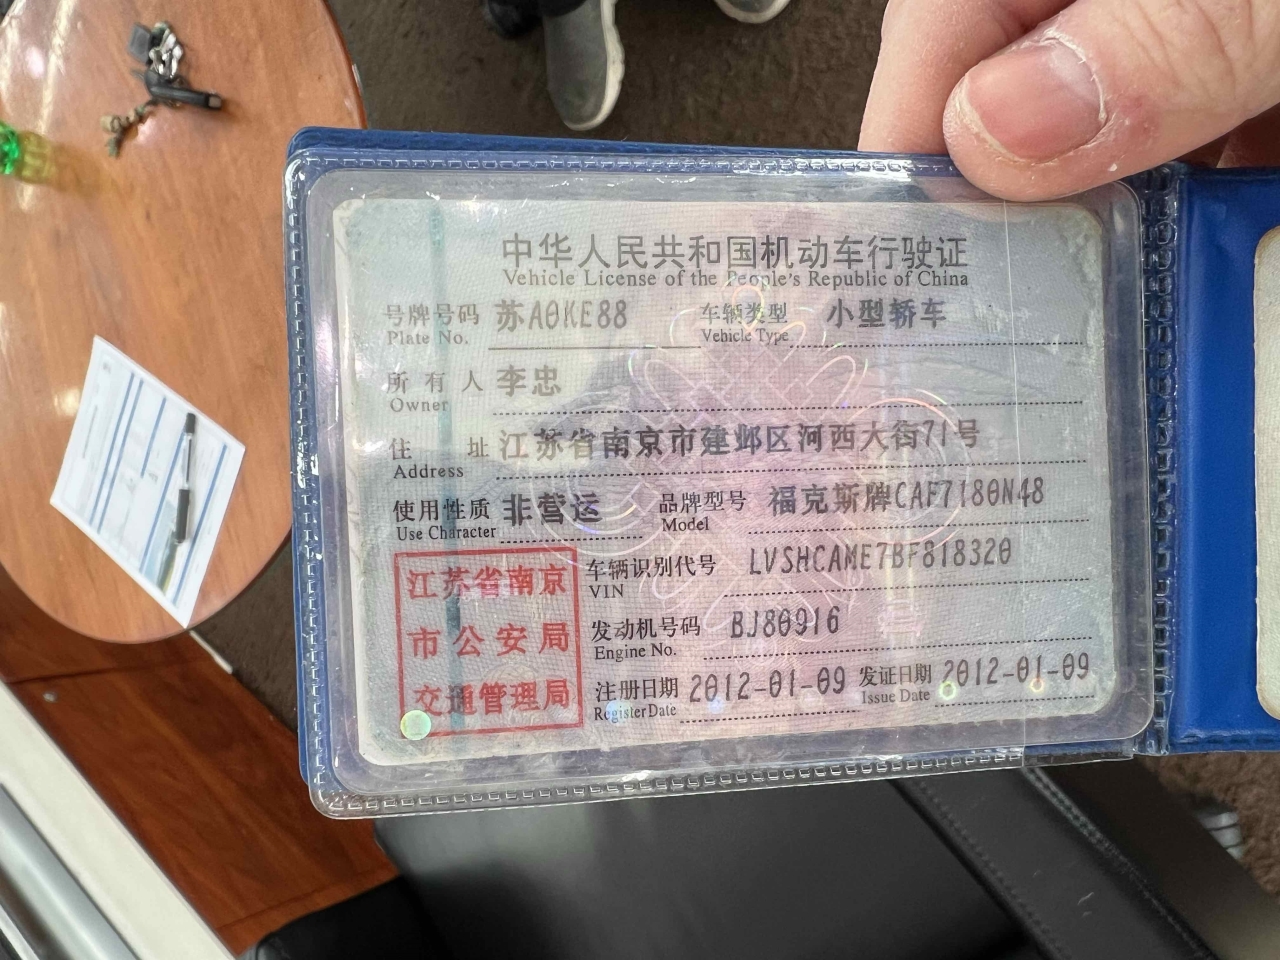 中华人民共和国机动车行驶证
Vehicle License of the People's Republic of China
号牌号码 苏A0KE88 车辆类型 小型轿车
Plate No. Vehicle Type
所有人 李忠
Owner
住址 江苏省南京市建邺区河西大街71号
Address
使用性质 非营运 品牌型号 福克斯牌CAF7180N48
Use Character Model
江苏省南京
市公安局
交通管理局
车辆识别代号 LVSHCAME7BF818320
VIN
发动机号码 BJ80916
Engine No.
注册日期 2012-01-09 发证日期 2012-01-09
Register Date Issue Date